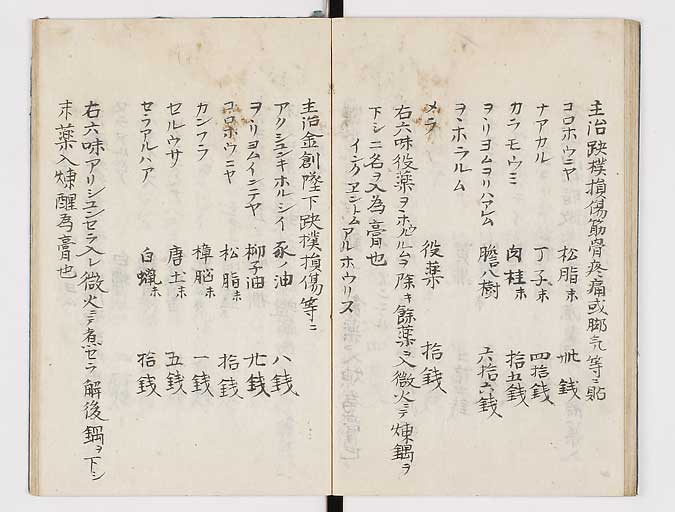 主治跌樸損傷筋骨疼痛或脚気等ニ貼
コロホウニヤ 松脂末 卅銭
ナアカル 丁子末 四拾銭
カラモウミ 肉桂末 拾五銭
ヲヽリヨムヨリハアルム 膽八樹 六拾六銭
ヲヽホラルム
メラ 役薬 拾銭
右六味役薬ヲホルムヲ除キ餘薬ニ入微火ニテ煉鍋ヲ
下シ二名ヲ入為膏也
インクエントムアルホウリス
主治金創墜下跌樸損傷等ニ
アクシユンキホルシイ 豕ノ油 八銭
ヲヽリヨムインニアヤ 椰子油 卅銭
コロホウニヤ 松脂末 拾銭
カンフラ 樟脳末 一銭
セルウサ 唐土末 五銭
セラアルハア 白蝋末 拾銭
右六味アクシユンセラ入レ微火ニテ煮セラ解後鍋ヲ下シ
末薬入煉醒為膏也